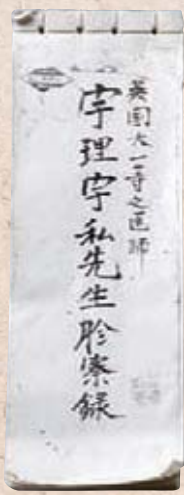 英國大一等之医師
宇理宇私先生胗察録